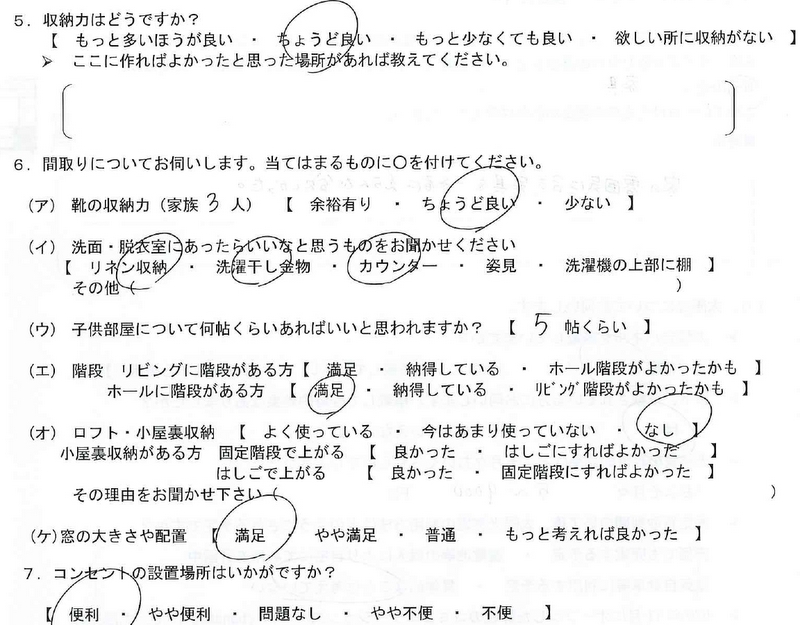 5．収納力はどうですか？
【　もっと多いほうが良い　・　ちょうど良い　・　もっと少なくても良い　・　欲しい所に収納がない　】
➢　ここに作ればよかったと思った場所があれば教えてください。
6．間取りについてお伺いします。当てはまるものに〇を付けてください。
（ア）　靴の収納力（家族 3 人）　【　余裕有り　・　ちょうど良い　・　少ない　】
（イ）　洗面・脱衣室にあったらいいなと思うものをお聞かせください
【　リネン収納　・　洗濯干し金物　・　カウンター　・　姿見　・　洗濯機の上部に棚　】
その他（　　　）
（ウ）　子供部屋について何帖くらいあればいいと思われますか？　【　5　帖くらい　】
（エ）　階段　リビングに階段がある方【　満足　・　納得している　・　ホール階段がよかったかも　】
ホールに階段がある方　【　満足　・　納得している　・　ﾘﾋﾞﾝｸﾞ階段がよかったかも　】
（オ）　ロフト・小屋裏収納　【　よく使っている　・　今はあまり使っていない　・　なし　】
小屋裏収納がある方　固定階段で上がる　【　良かった　・　はしごにすればよかった　】
はしごで上がる　【　良かった　・　固定階段にすればよかった　】
その理由をお聞かせ下さい（　　　）
（ケ）窓の大きさや配置　【　満足　・　やや満足　・　普通　・　もっと考えれば良かった　】
7．コンセントの設置場所はいかがですか？
【　便利　・　やや便利　・　問題なし　・　やや不便　・　不便　】